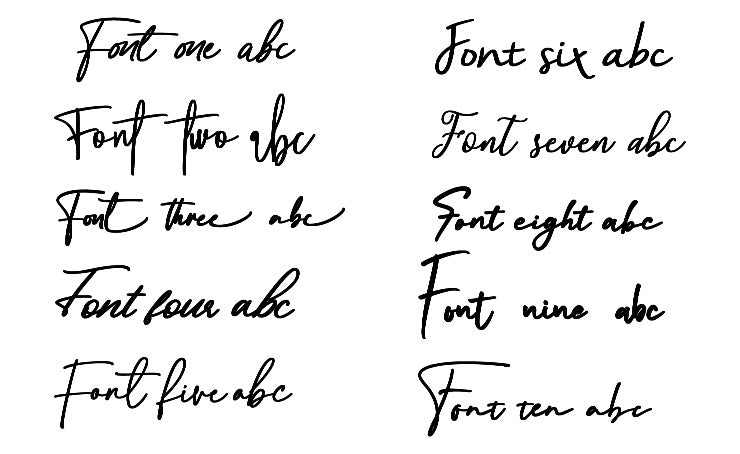 Font one abc
Font two abc
Font three abc
Font four abc
Font five abc
Font six abc
Font seven abc
Font eight abc
Font nine abc
Font ten abc